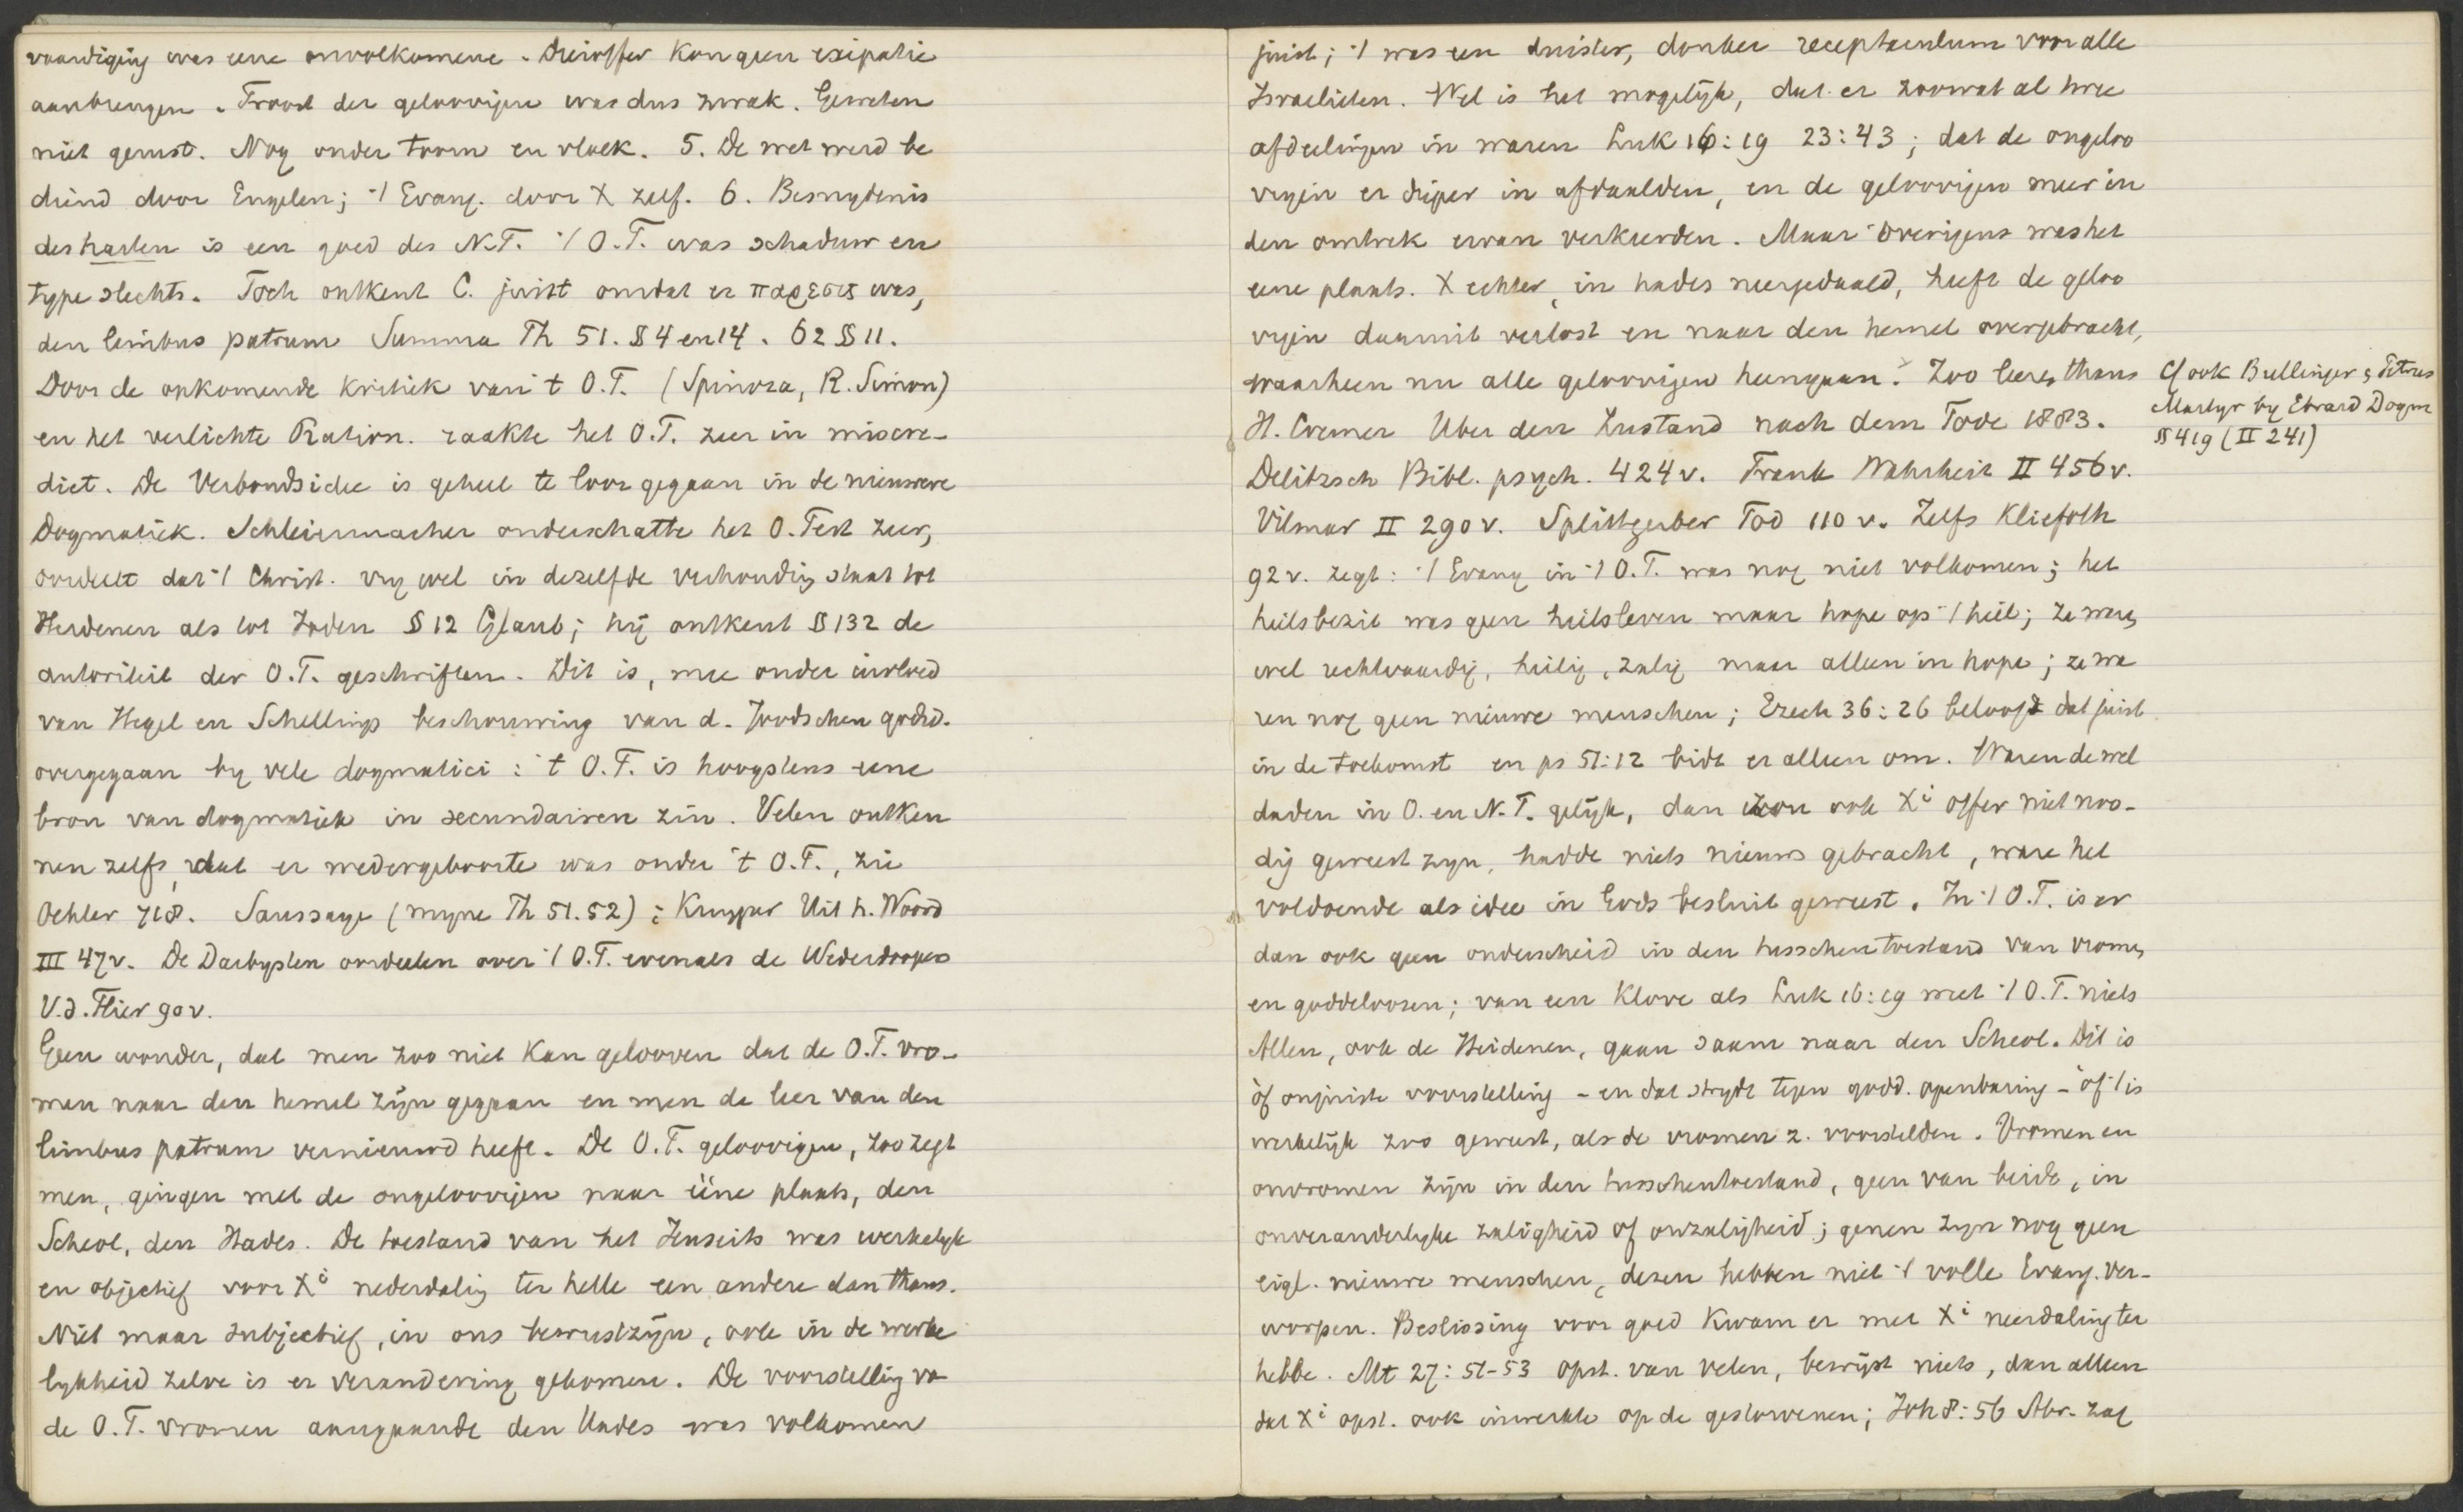 vaardiging was eene onvolkomene. Dieroffer kon geen expiatie
aanbrengen. Troost der geloovigen was dus zwak. Geweten
niet gerust. Nog onder toorn en vloek. 5. De wet werd be
diend door Engelen; 't Evang. door X zelf. 6. Besnydenis
des harten is een goed des N.T. 't O.T. was schaduw en
type slechts. Toch ontkent C. juist omdat er παρεσις was,
den limbus patrum Summa Th 51. § 4 en 14. 62 § 11.
Door de opkomende kritiek van 't O.T. (Spinoza, R. Simon)
en het verlichte Ration. raakte het O.T. zeer in miscre-
diet. De Verbondsidee is geheel te loor gegaan in de nieuwere
Dogmatiek. Schleiermacher onderschatte het O. Test zeer,
oordeelt dat 't Christ. vry wel in dezelfde verhouding staat tot
Heidenen als tot Joden § 12 Glaub; hij ontkent § 132 de
autoriteit der O.T. geschriften. Dit is, mee onder invloed
van Hegel en Schellings beschouwing van d. Joodschen godsd.
overgegaan by vele dogmatici: 't O.T. is hoogstens eene
bron van dogmatiek in secundairen zin. Velen ontken
nen zelfs, dat er wedergeboorte was onder 't O.T., zie
Oehler 718. Saussaye (myne Th 51.52); Kuyper Uit h. Woord
III 47v. De Darbysten oordeelen over 't O.T. evenals de Wederdoopers
V.d. Flier 90 v.
Geen wonder, dat men zoo niet kan gelooven dat de O.T. vro-
men naar den hemel zijn gegaan en men de leer van den
limbus patrum vernieuwd heeft. De O.T. geloovigen, zoo zegt
men, gingen met de ongeloovigen naar ééne plaats, den
Scheol, den Hades. De toestand van het Jenseits was werkelyk
en objectief voor Xi nederdaling ter helle een andere dan thans.
Niet maar subjectief, in ons bewustzijn, ook in de werke
lykheid zelve is er verandering gekomen. De voorstelling va
de O.T. vromen aangaande den Hades was volkomen
juist; 't was een duister, donker receptaculum voor alle
Israelieten. Wel is het mogelijk, dat er zoowat al twee
afdeelingen in waren Luk 16:19 23:43; dat de ongeloo
vigen er dieper in afdaalden, en de geloovigen meer in
den omtrek ervan verkeerden. Maar overigens was het
eene plaats. X echter, in hades neergedaald, heeft de geloo
vigen daaruit verlost en naar den hemel overgebracht,
waarheen nu alle geloovigen heengaan. Zoo leeren thans
H. Cremer Uber den Zustand nach dem Tode 1883.
Delitzsch Bibl. psych. 424v. Frank Wahrheit II 456v.
Vilmar II 290v. Splittgerber Tod 110 v. Zelfs Kliefoth
92 v. zegt: 't Evang in 't O.T. was nog niet volkomen; het
heilsbezit was geen heilsleven maar hope op 't heil; ze waren
wel rechtvaardig, heilig, zalig maar alleen in hope; ze wa
ren nog geen nieuwe menschen; Ezech 36:26 belooft dat juist
in de toekomst en ps 51:12 bidt er alleen om. Waren de wel
daden in O. en N.T. gelijk, dan zou ook Xi offer niet noo-
dig geweest zyn, hadde niets nieuws gebracht, ware het
voldoende als idee in Gods besluit geweest. In 't O.T. is er
dan ook geen onderscheid in den tusschentoestand van vromen
en goddeloozen; van een klove als Luk 16:19 weet 't O.T. niets
Allen, ook de Heidenen, gaan saam naar den Scheol. Dit is
òf onjuiste voorstelling - en dat strydt tegen godd. openbaring - òf 't is
werkelijk zoo geweest, als de vromen z. voorstelden. Vromen en
onvromen zijn in den tusschentoestand, geen van beide, in
onveranderlyke zaligheid of onzaligheid; genen zyn nog geen
eigl. nieuwe menschen, dezen hebben niet 't volle Evang. ver-
worpen. Beslissing voor goed kwam er met Xi neerdaling ter
helle. Mt 27:51-53 opst. van velen, bewijst niets, dan alleen
dat Xi opst. ook inwerkte op de gestorvenen; Joh 8:56 Abr. zag
Cf ook Bullinger, Petrus
Martyr by Ebrard Dogm
§ 419 (II 241)